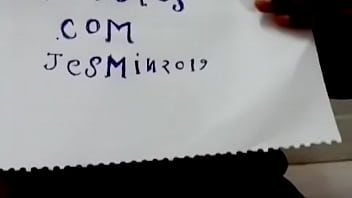 .COM
JesMin2019